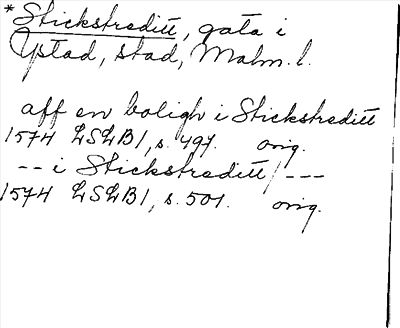 *Stickstreditt, gata i
Ystad, stad, Malm. l.
aff en boligh i Stickstreditt
1574 LSLB1, s. 497. orig.
-- i Stickstreditt / ---
1574 LSLB1, s. 501. orig.